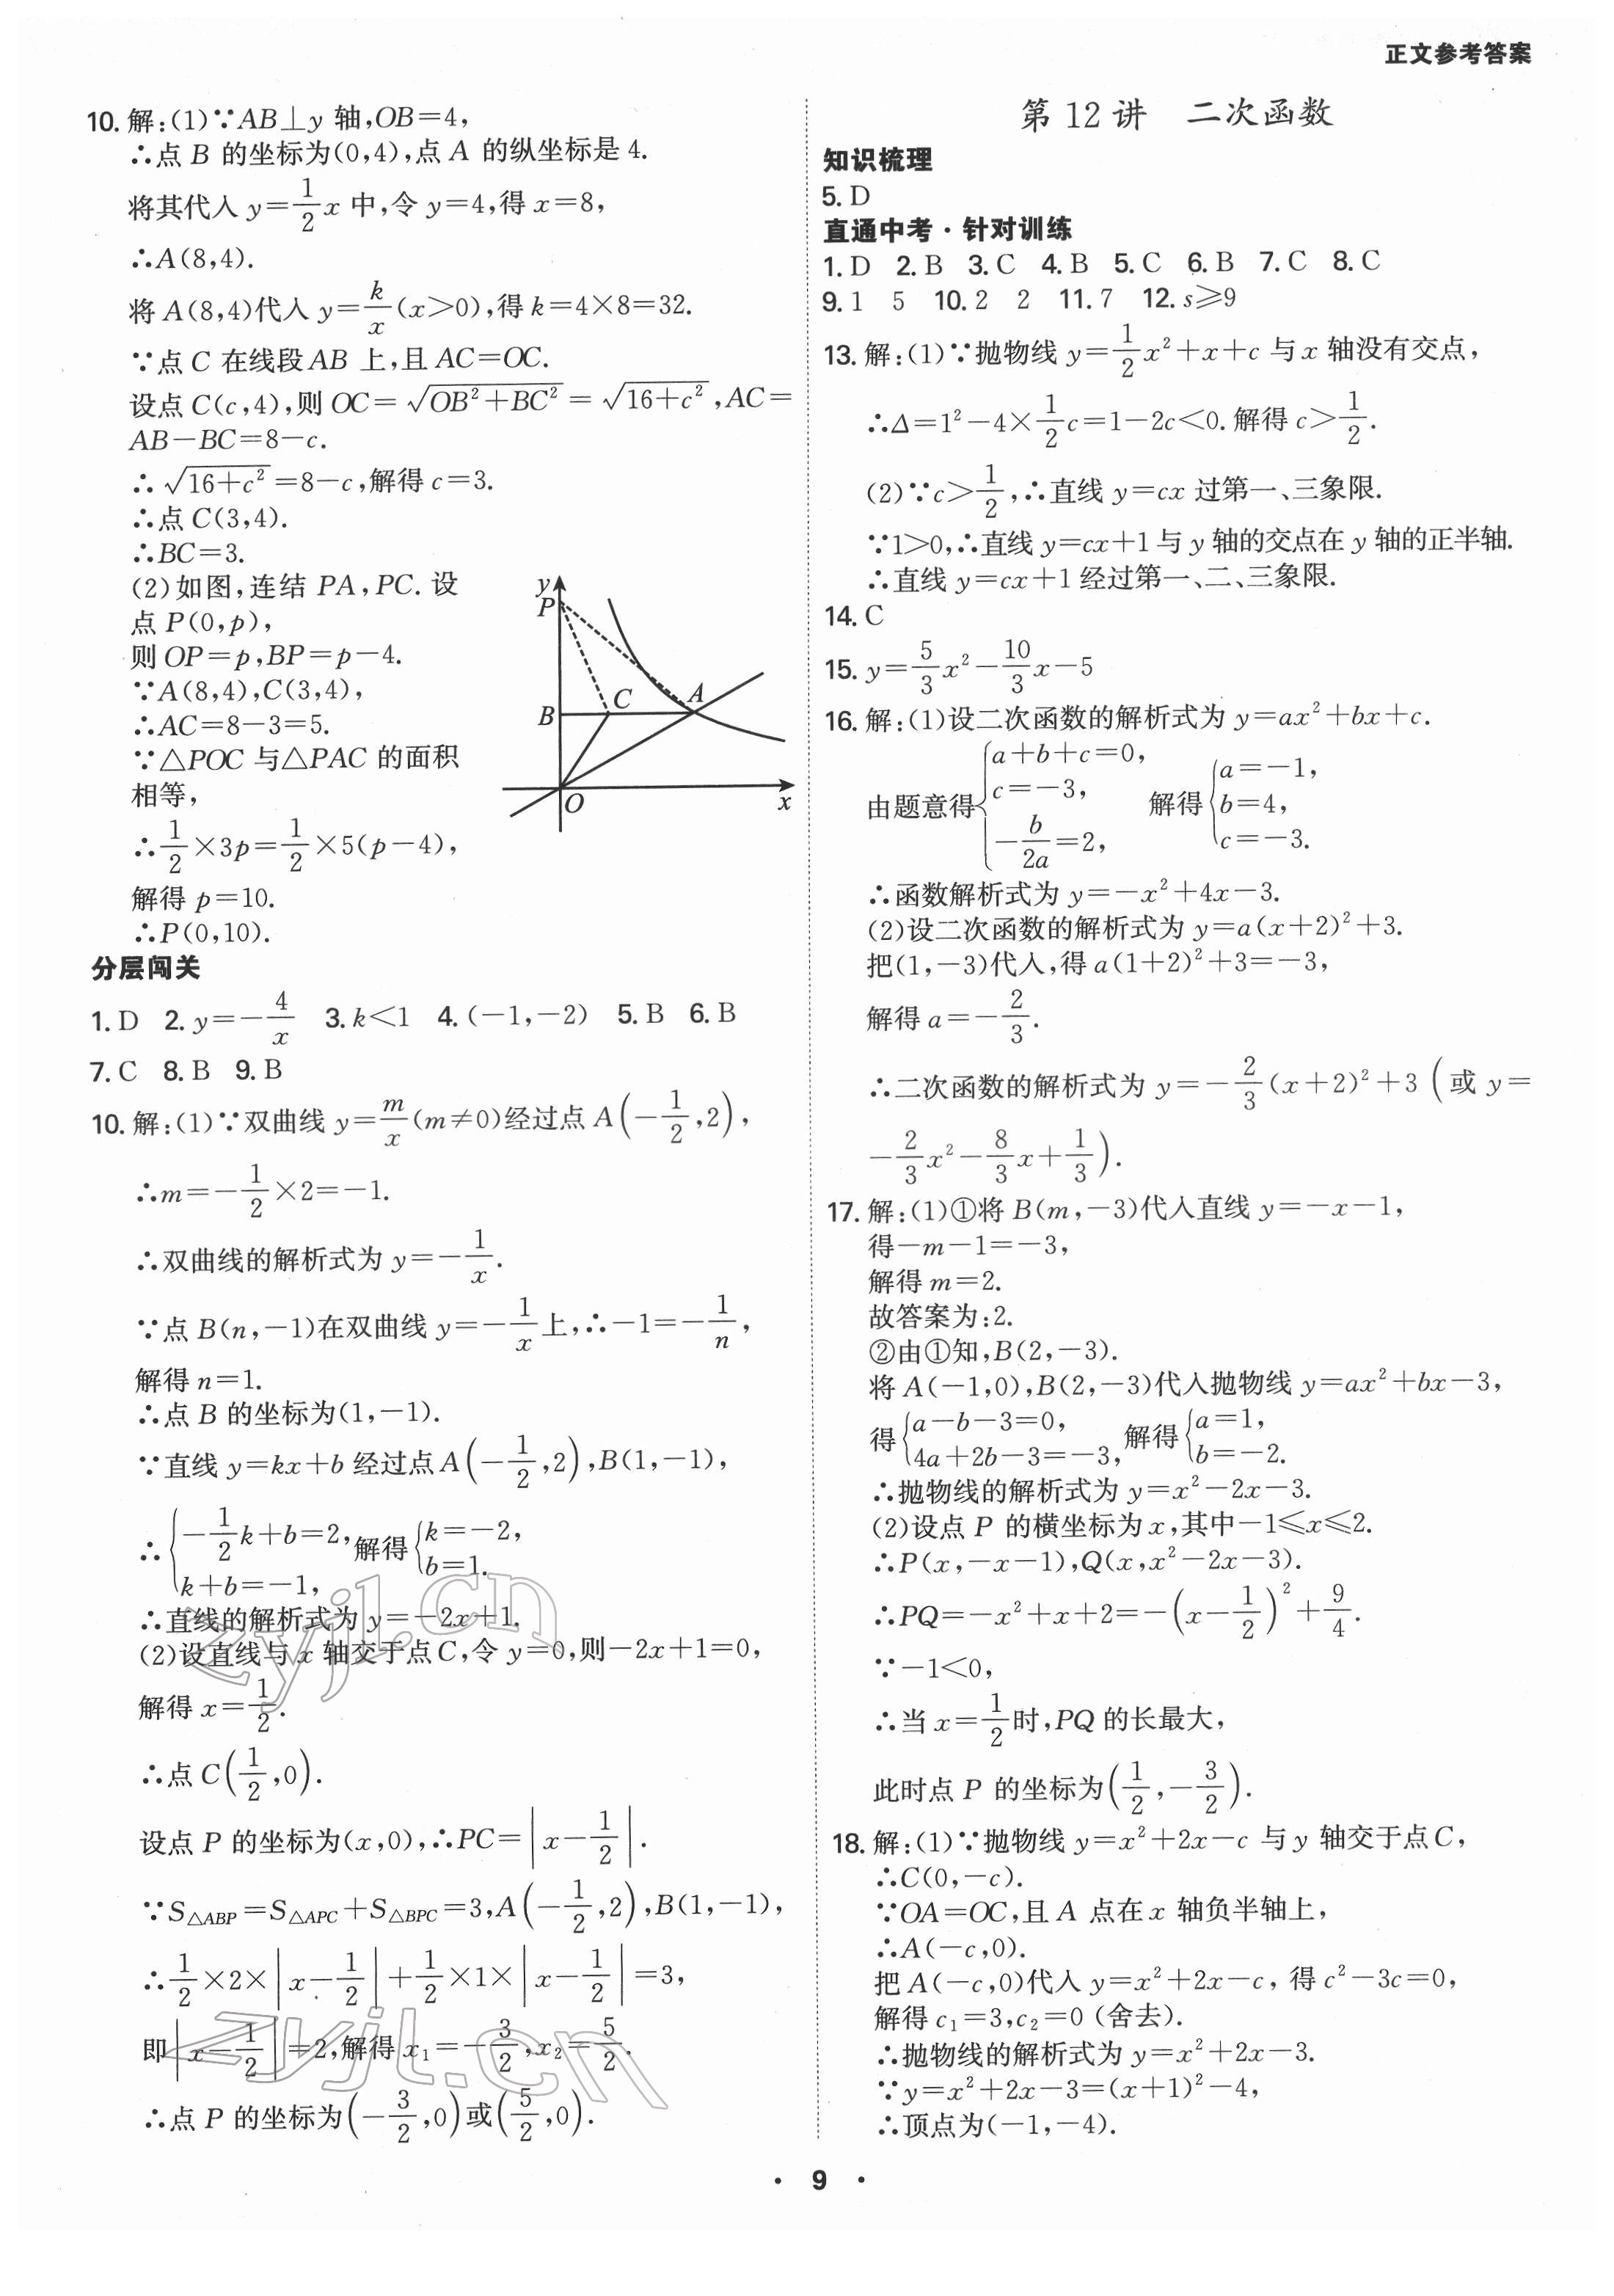 正文参考答案
10. 解:(1)∵AB⊥y 轴,OB=4,
∴点 B 的坐标为(0,4),点 A 的纵坐标是 4.
将其代入 y=1/2x 中,令 y=4,得 x=8,
∴A(8,4).
将 A(8,4)代入 y=k/x(x>0),得 k=4×8=32.
∵点 C 在线段 AB 上,且 AC=OC.
设点 C(c,4),则 OC=√(OB²+BC²)=√(16+c²),AC=
AB-BC=8-c.
∴√(16+c²)=8-c,解得 c=3.
∴点 C(3,4).
∴BC=3.
(2)如图,连结 PA,PC. 设
点 P(0,p),
则 OP=p,BP=p-4.
∵A(8,4),C(3,4),
∴AC=8-3=5.
∵△POC 与△PAC 的面积
相等,
∴1/2×3p=1/2×5(p-4),
解得 p=10.
∴P(0,10).
y
P
C
A
B
O
x
分层闯关
1. D 2. y=-4/x 3. k<1 4. (-1,-2) 5. B 6. B
7. C 8. B 9. B
10. 解:(1)∵双曲线 y=m/x(m≠0)经过点 A(-1/2,2),
∴m=-1/2×2=-1.
∴双曲线的解析式为 y=-1/x.
∵点 B(n,-1)在双曲线 y=-1/x上,∴-1=-1/n,
解得 n=1.
∴点 B 的坐标为(1,-1).
∵直线 y=kx+b 经过点 A(-1/2,2),B(1,-1),
∴{-1/2k+b=2, k+b=-1, 解得{k=-2, b=1.
∴直线的解析式为 y=-2x+1.
(2)设直线与 x 轴交于点 C,令 y=0,则-2x+1=0,
解得 x=1/2.
∴点 C(1/2,0).
设点 P 的坐标为(x,0),∴PC=|x-1/2|.
∵S△ABP=S△APC+S△BPC=3,A(-1/2,2),B(1,-1),
∴1/2×2×|x-1/2|+1/2×1×|x-1/2|=3,
即|x-1/2|=2,解得 x₁=-3/2,x₂=5/2.
∴点 P 的坐标为(-3/2,0)或(5/2,0).
第 12 讲 二次函数
知识梳理
5. D
直通中考·针对训练
1. D 2. B 3. C 4. B 5. C 6. B 7. C 8. C
9. 1 5 10. 2 2 11. 7 12. s≥9
13. 解:(1)∵抛物线 y=1/2x²+x+c 与 x 轴没有交点,
∴Δ=1²-4×1/2c=1-2c<0. 解得 c>1/2.
(2)∵c>1/2,∴直线 y=cx 过第一、三象限.
∵1>0,∴直线 y=cx+1 与 y 轴的交点在 y 轴的正半轴.
∴直线 y=cx+1 经过第一、二、三象限.
14. C
15. y=5/3x²-10/3x-5
16. 解:(1)设二次函数的解析式为 y=ax²+bx+c.
由题意得{a+b+c=0, c=-3, -b/2a=2, 解得{a=-1, b=4, c=-3.
∴函数解析式为 y=-x²+4x-3.
(2)设二次函数的解析式为 y=a(x+2)²+3.
把(1,-3)代入,得 a(1+2)²+3=-3,
解得 a=-2/3.
∴二次函数的解析式为 y=-2/3(x+2)²+3(或 y=
-2/3x²-8/3x+1/3).
17. 解:(1)①将 B(m,-3)代入直线 y=-x-1,
得-m-1=-3,
解得 m=2.
故答案为:2.
②由①知,B(2,-3).
将 A(-1,0),B(2,-3)代入抛物线 y=ax²+bx-3,
得{a-b-3=0, 4a+2b-3=-3, 解得{a=1, b=-2.
∴抛物线的解析式为 y=x²-2x-3.
(2)设点 P 的横坐标为 x,其中-1≤x≤2.
∴P(x,-x-1),Q(x,x²-2x-3).
∴PQ=-x²+x+2=-(x-1/2)²+9/4.
∵-1<0,
∴当 x=1/2时,PQ 的长最大,
此时点 P 的坐标为(1/2,-3/2).
18. 解:(1)∵抛物线 y=x²+2x-c 与 y 轴交于点 C,
∴C(0,-c).
∵OA=OC,且 A 点在 x 轴负半轴上,
∴A(-c,0).
把 A(-c,0)代入 y=x²+2x-c, 得 c²-3c=0,
解得 c₁=3,c₂=0 (舍去).
∴抛物线的解析式为 y=x²+2x-3.
∵y=x²+2x-3=(x+1)²-4,
∴顶点为(-1,-4).
· 9 ·
zyjl.cn
zyjl.cn